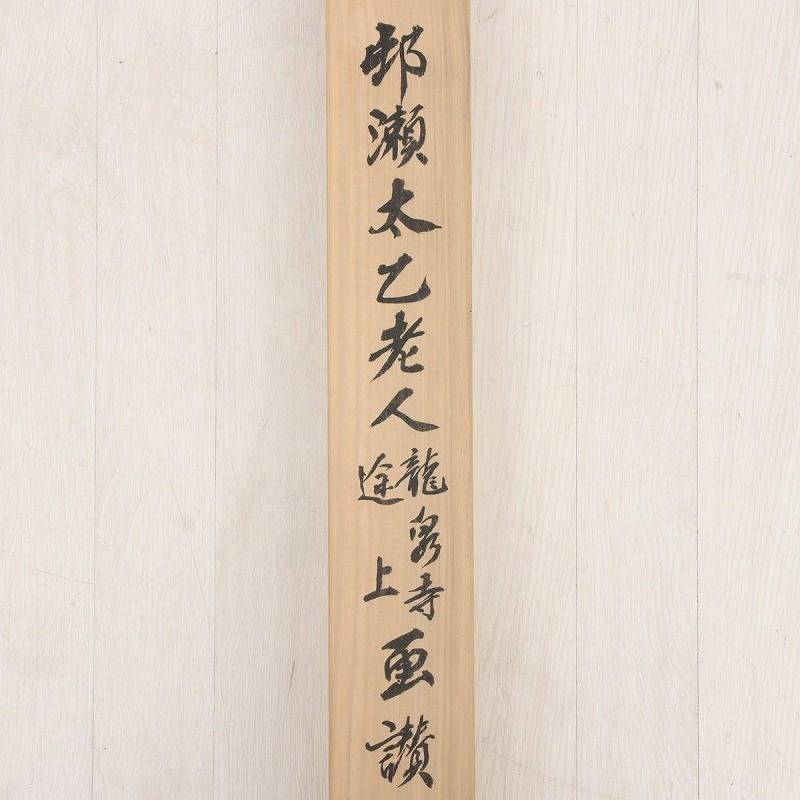 邨瀬太乙老人
龍泉寺
途上
画讃